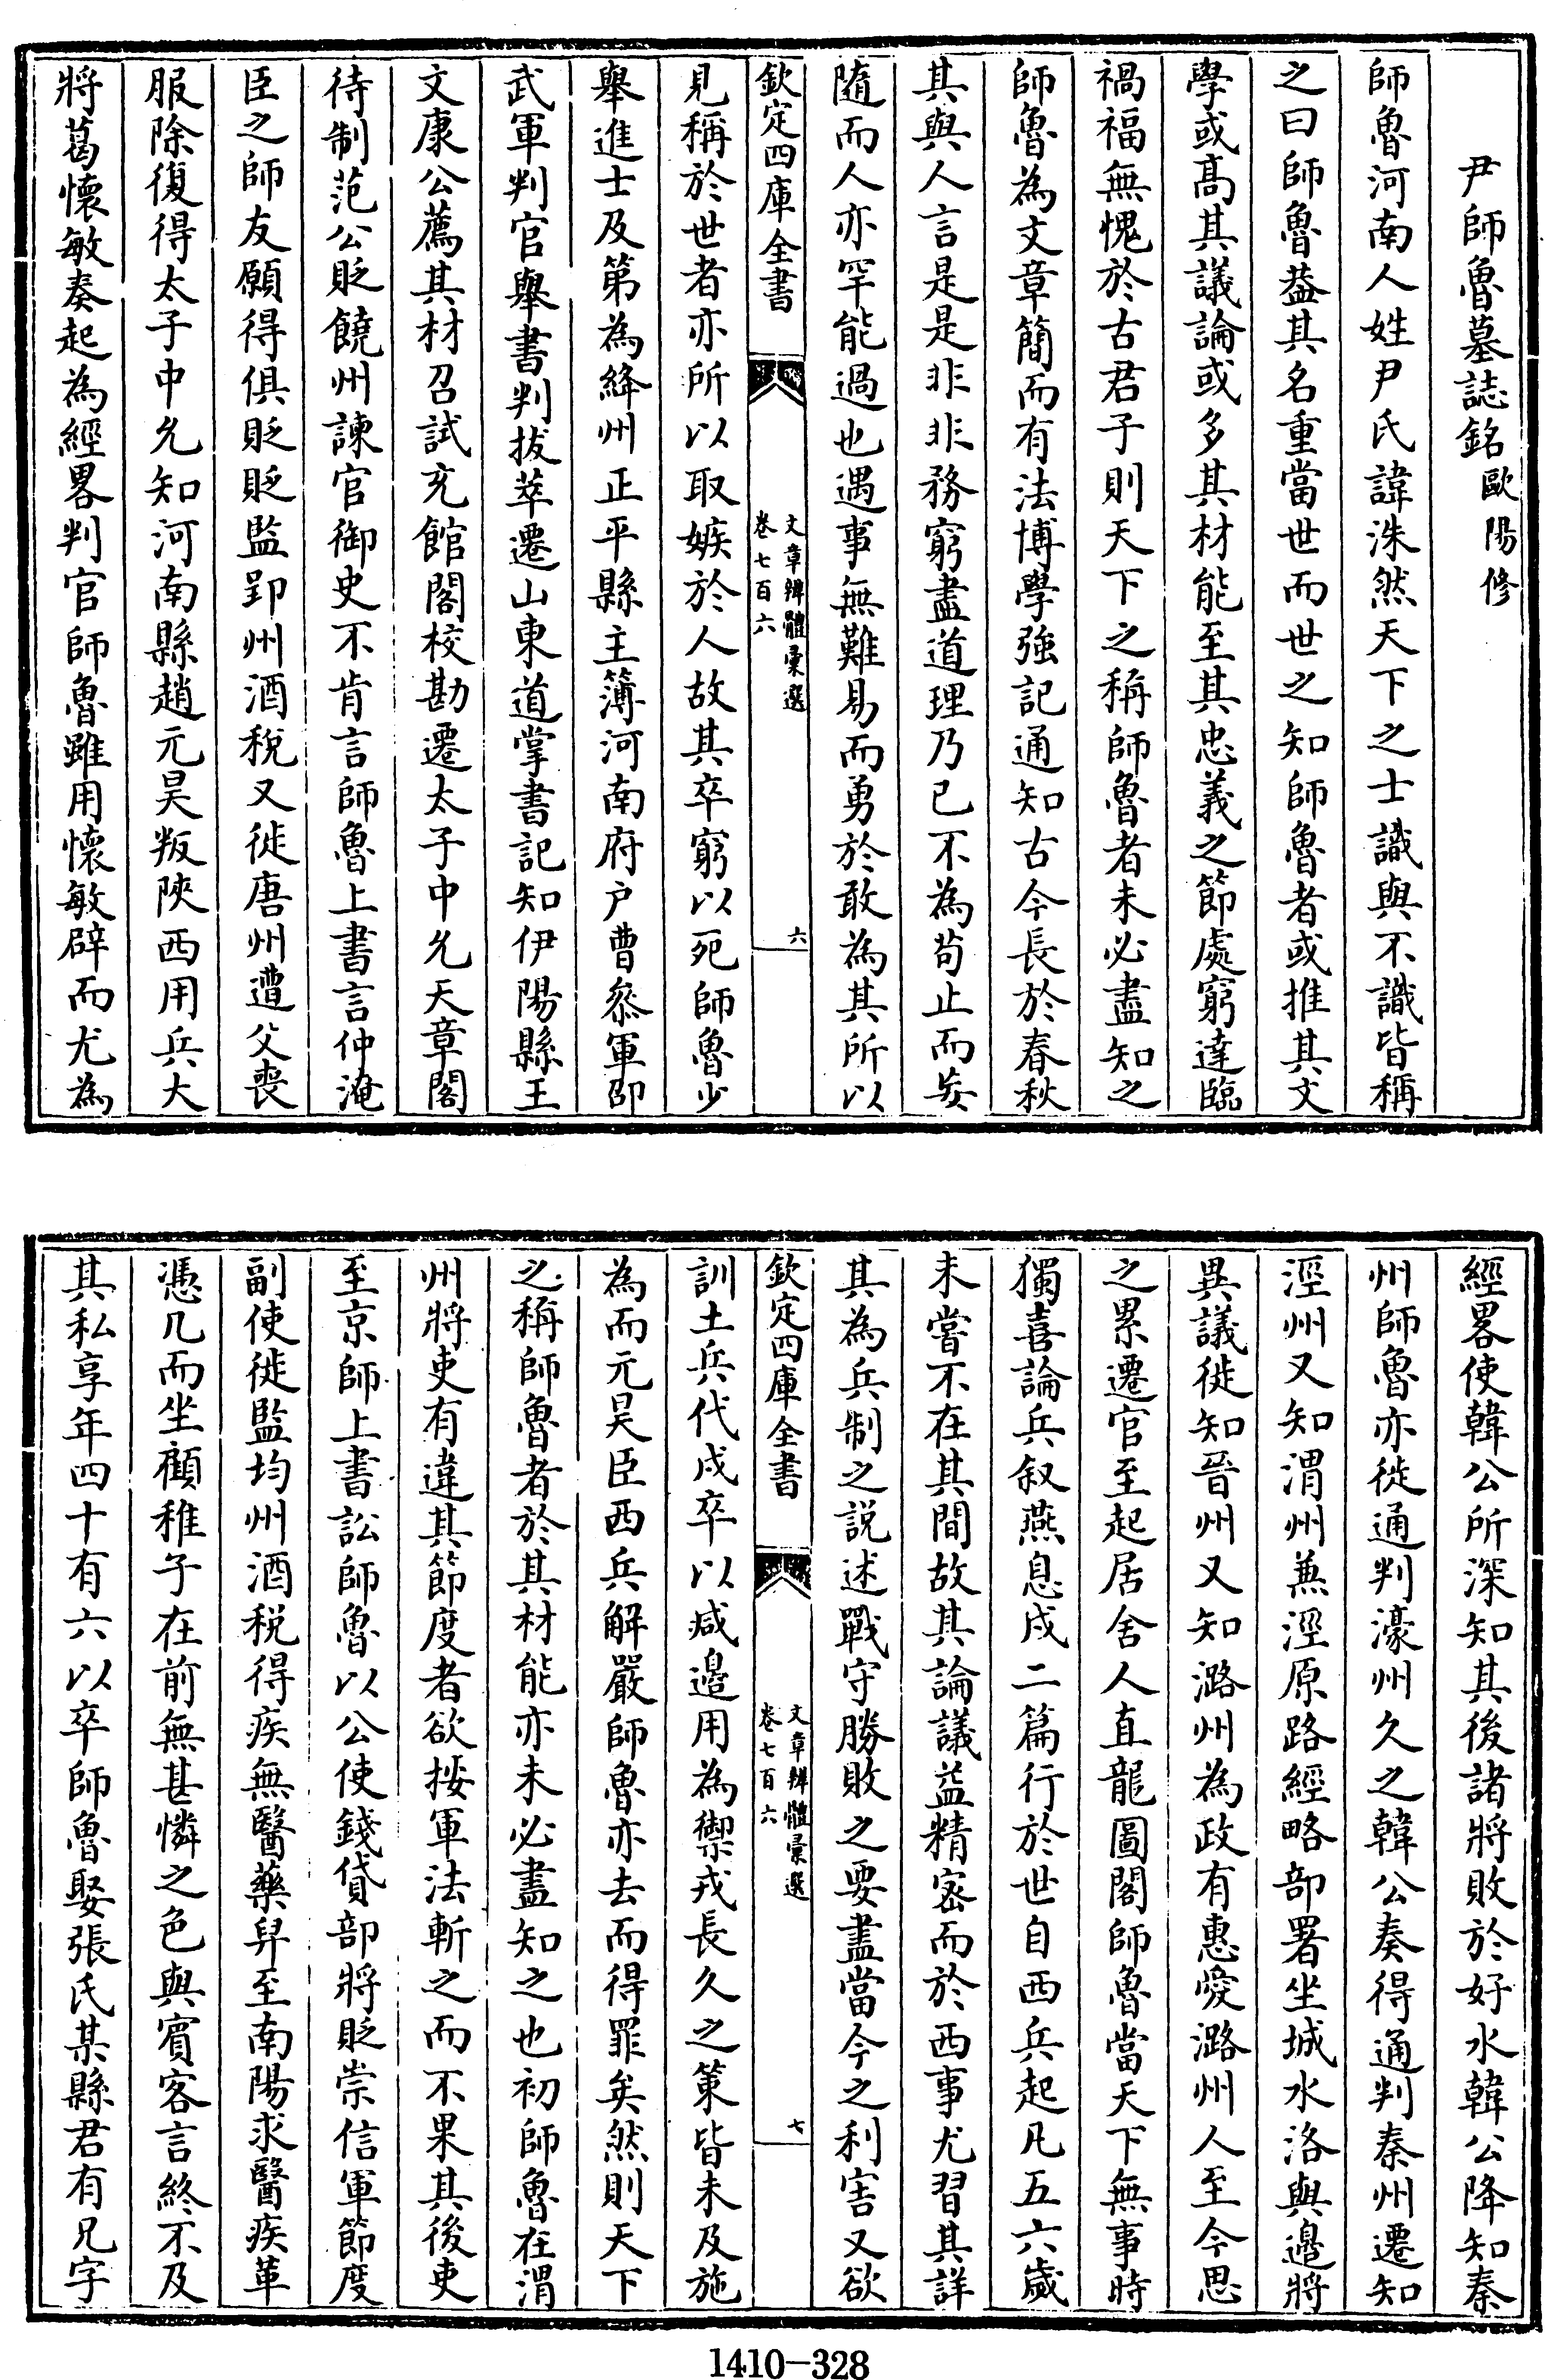 尹師魯墓誌銘歐陽修
師魯河南人姓尹氏諱洙然天下之士識與不識皆稱
之曰師魯葢其名重當世而世之知師魯者或推其文
學或髙其議論或多其材能至其忠義之節處窮達臨
禍福無愧於古君子則天下之稱師魯者未必盡知之
師魯為文章簡而有法博學強記通知古今長於春秋
其與人言是是非非務窮盡道理乃已不為苟止而妄
隨而人亦罕能過也遇事無難易而勇於敢為其所以
欽定四庫全書
文章辨體彙選
卷七百六
六
見稱於世者亦所以取嫉於人故其卒窮以死師魯少
舉進士及第為絳州正平縣主簿河南府户曹叅軍邵
武軍判官舉書判拔萃遷山東道掌書記知伊陽縣王
文康公薦其材召試充館閣校勘遷太子中允天章閣
待制范公貶饒州諫官御史不肯言師魯上書言仲淹
臣之師友願得俱貶貶監郢州酒稅又徙唐州遭父喪
服除復得太子中允知河南縣趙元昊叛陝西用兵大
將葛懷敏奏起為經畧判官師魯雖用懷敏辟而尤為
經畧使韓公所深知其後諸將敗於好水韓公降知秦
州師魯亦徙通判濠州久之韓公奏得通判秦州遷知
涇州又知渭州兼涇原路經略部署坐城水洛與邊將
異議徙知晉州又知潞州為政有惠愛潞州人至今思
之累遷官至起居舍人直龍圖閣師魯當天下無事時
獨喜論兵叙燕息戍二篇行於世自西兵起凡五六歲
未嘗不在其間故其論議益精宻而於西事尤習其詳
其為兵制之說述戰守勝敗之要盡當今之利害又欲
欽定四庫全書
文章辨體彙選
卷七百六
七
訓土兵代戍卒以減邊用為禦戎長久之策皆未及施
為而元昊臣西兵解嚴師魯亦去而得罪矣然則天下
之稱師魯者於其材能亦未必盡知之也初師魯在渭
州將吏有違其節度者欲按軍法斬之而不果其後吏
至京師上書訟師魯以公使錢貸部將貶崇信軍節度
副使徙監均州酒稅得疾無醫藥舁至南陽求醫疾革
憑几而坐顧稚子在前無甚憐之色與賓客言終不及
其私享年四十有六以卒師魯娶張氏某縣君有兄字
1410-328